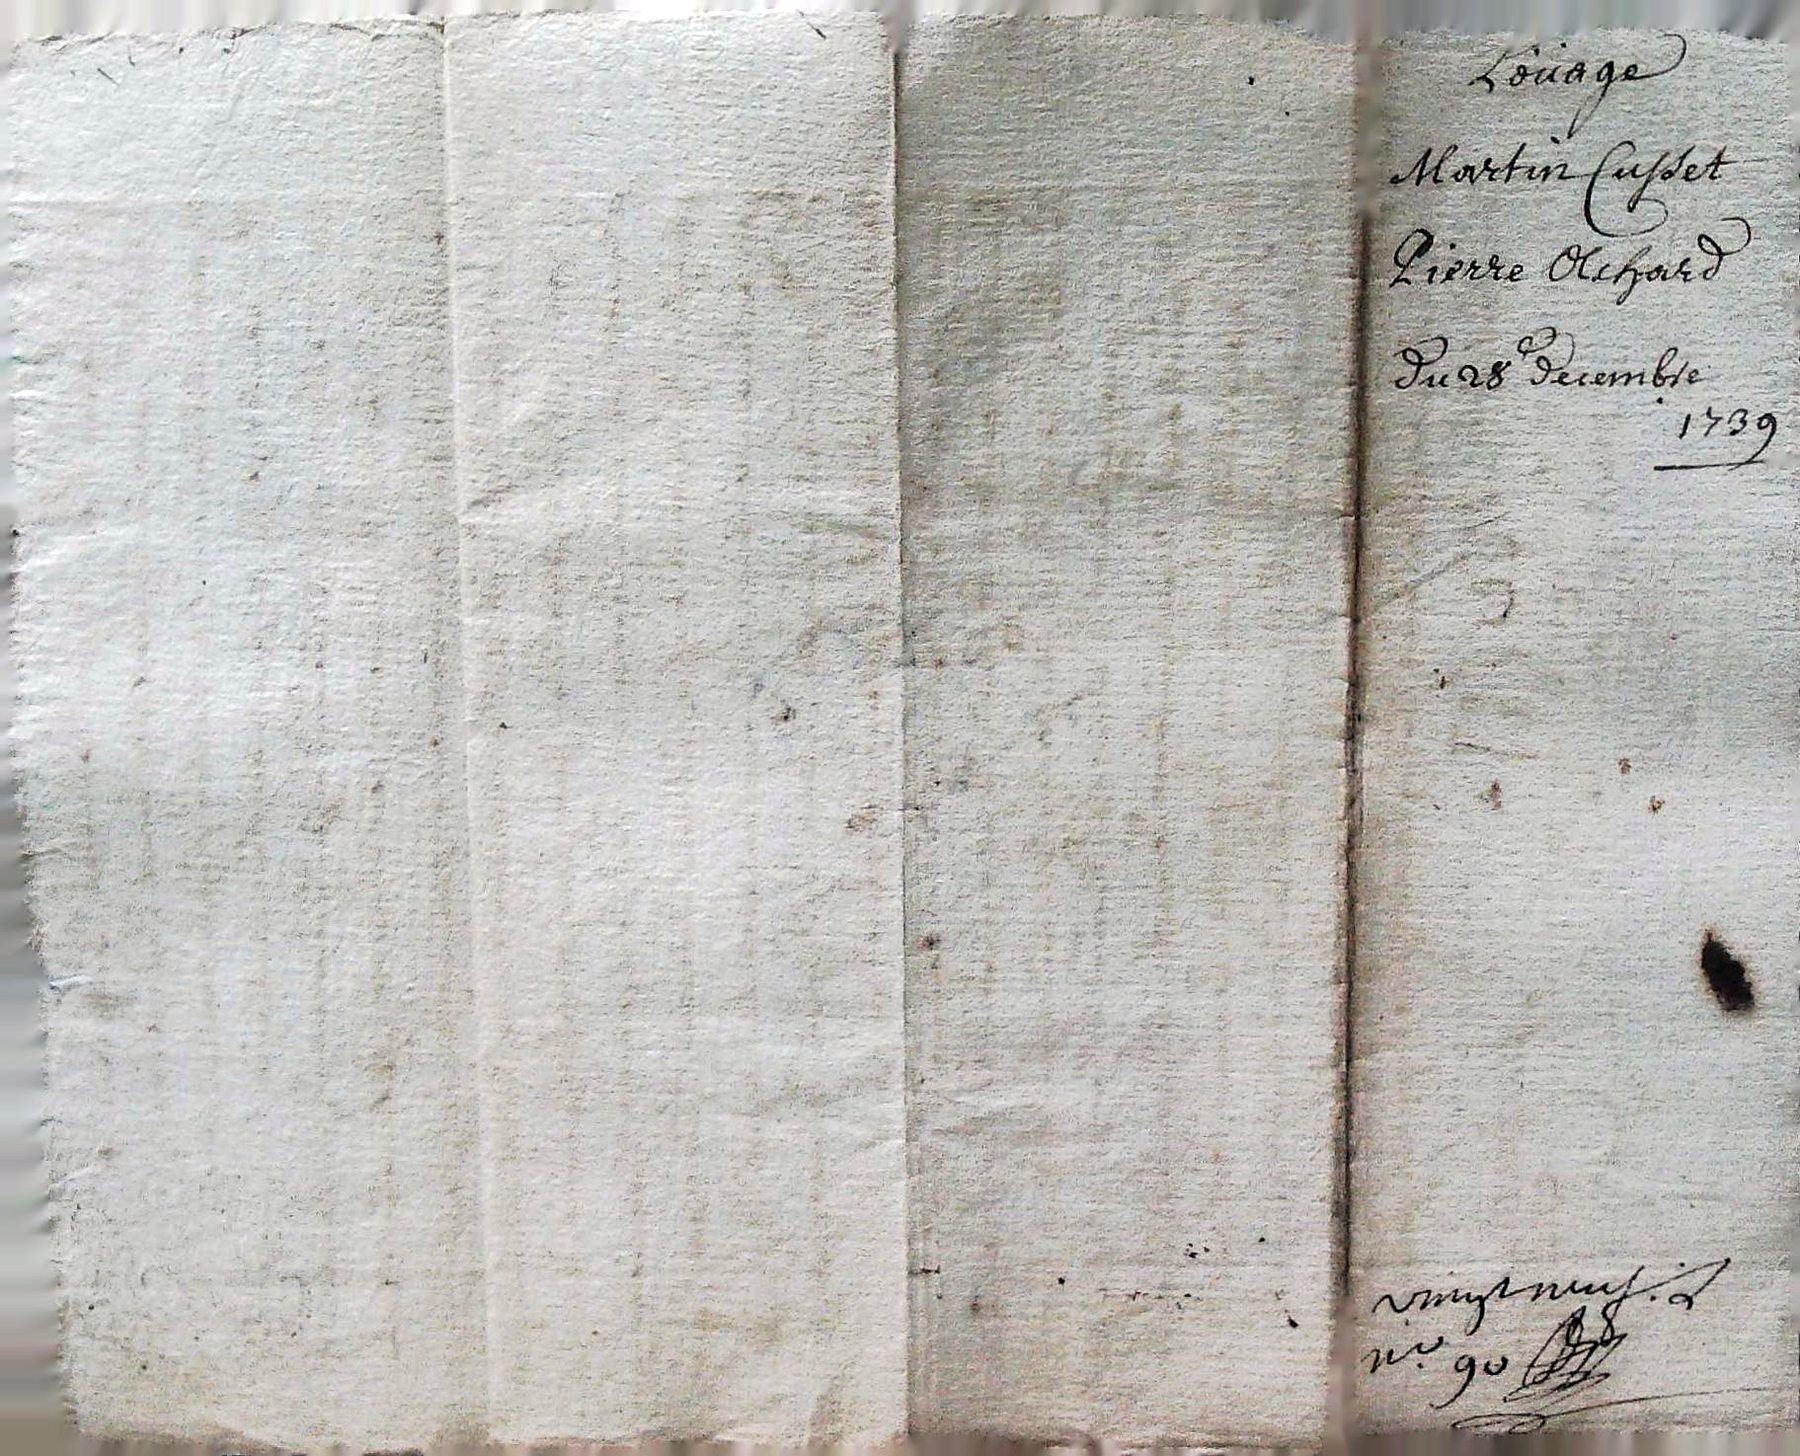 Loüage
Martin Cusset
Pierre Achard
du 28e decembre
1739
vingt neuf.
no. 90